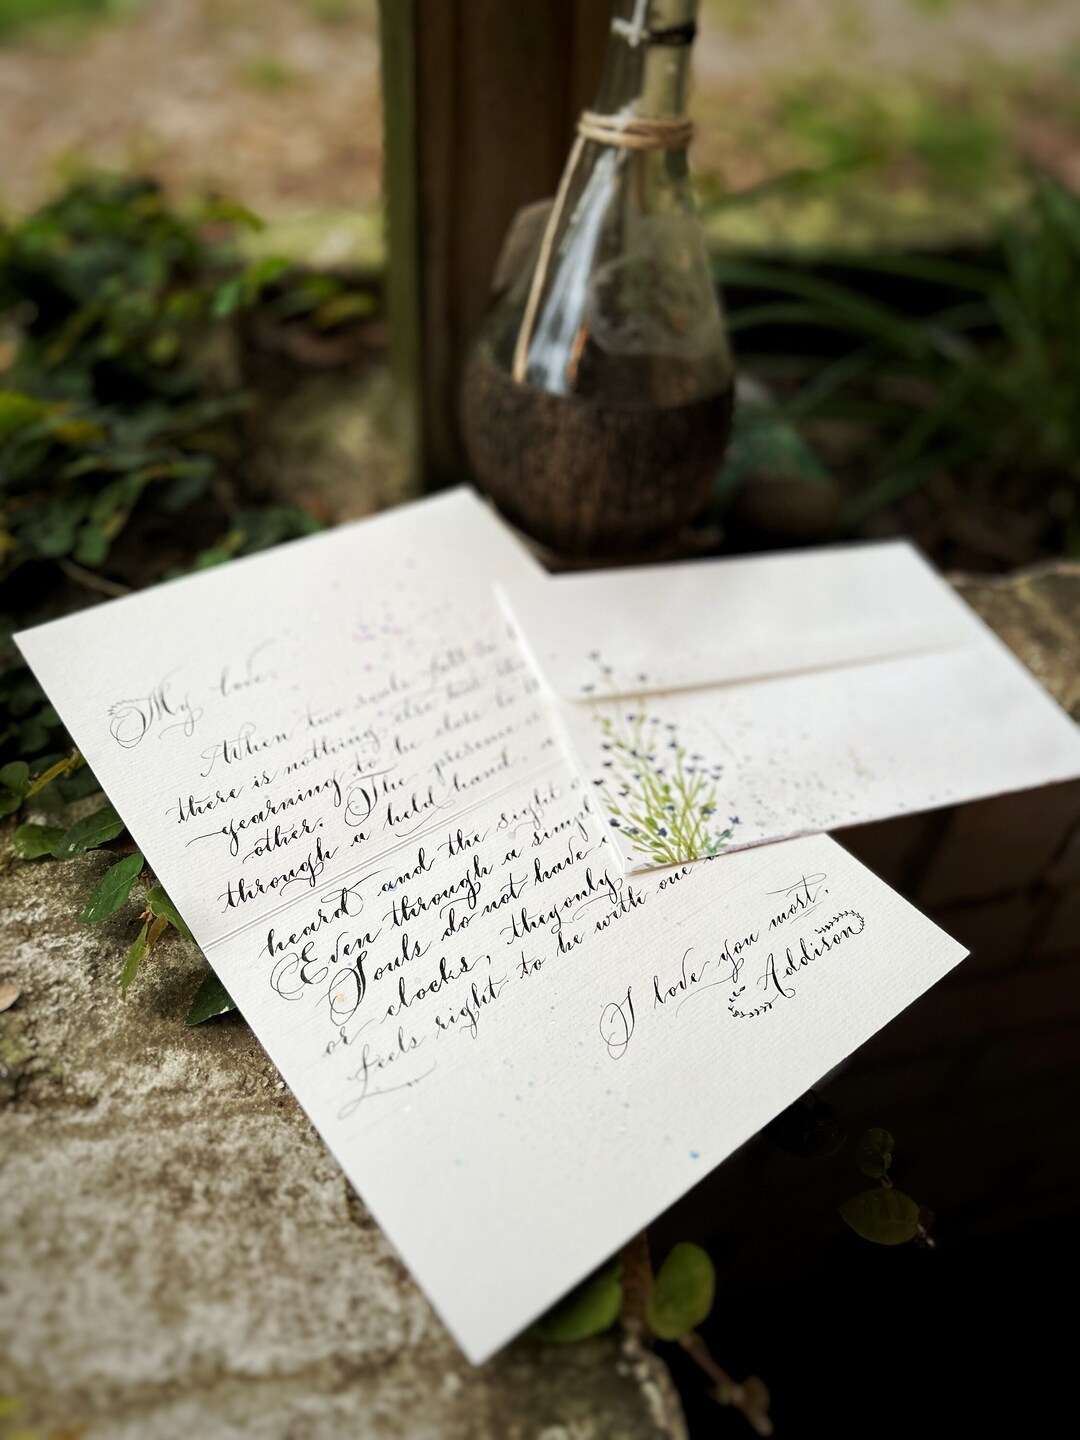 My love,
When two souls fall in
there is nothing else but the
yearning to be close to
other. The presence is
through a held hand, a
heard and the sight
Even through a simple
Souls do not have
or clocks, they only
feels right to be with one
I love you most,
Addison